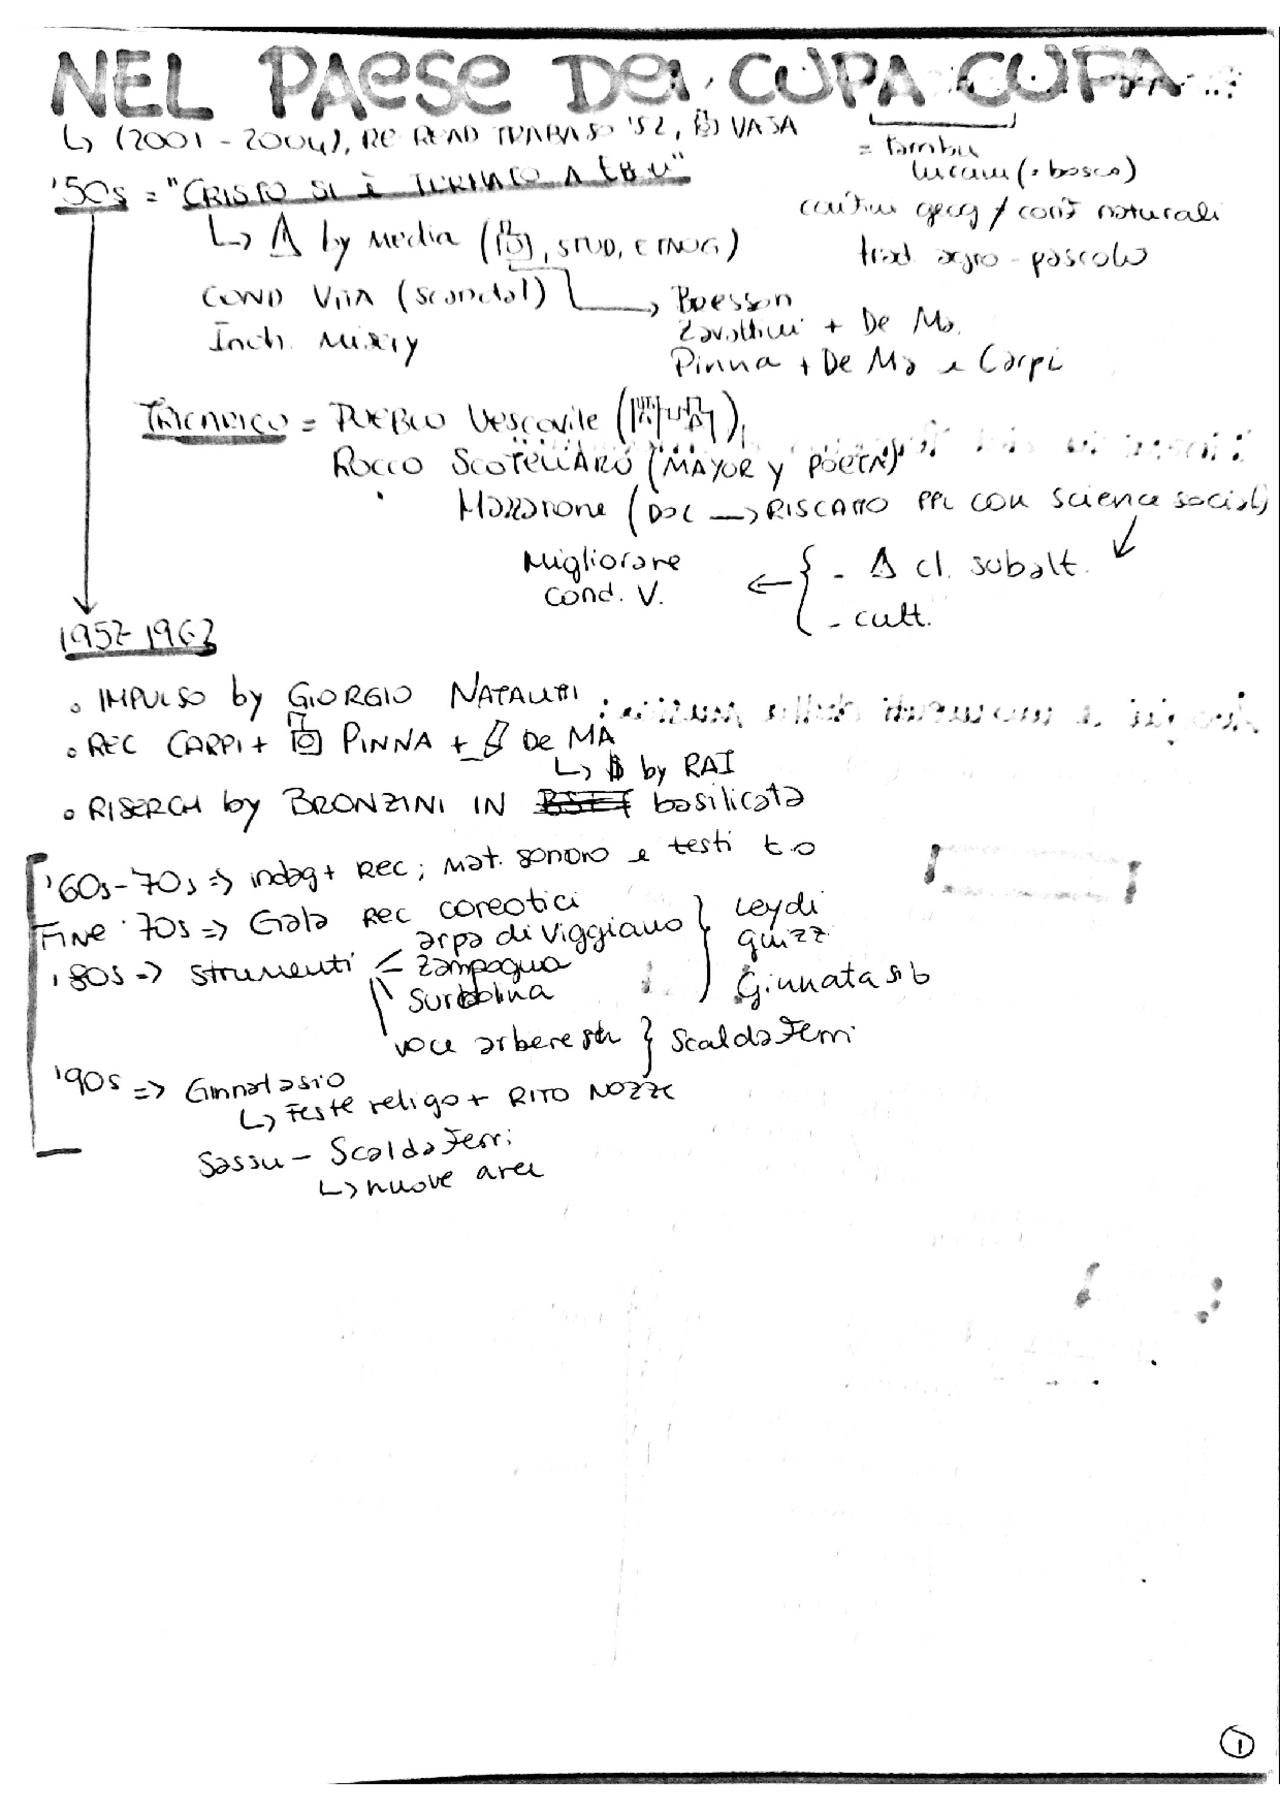 NEL PAESE DEI CUPA CUPA
↳ (2001-2004), RE READ TRABAJO '52, VAJA
= tambu
lucani (= bosco)
'50s = "CRISTO SI È FERMATO A EBOLI"
confini geog / conf naturali
↳ Δ by Media (, STUD, ETNOG)
trad. agro-pascolo
COND VITA (scandal)
→ Bresson
Inch. Misery
Zavattini + De Ma.
Pinna + De Ma e Carpi
TRICARICO = PUEBLO Vescovile
ROCCO SCOTELLARO (MAYOR y POETA)
Mazzarone (DOC → RISCATTO PPL con science social)
Migliorare
cond. V.
← { - Δ cl. subalt.
- cult.
1952-1962
• IMPULSO by GIORGIO NATALETTI
• REC CARPI + PINNA + De MA
↳ $ by RAI
• RISERCH by BRONZINI IN basilicata
'60s-70s => indag + REC; mat. sonoro e testi t.o
FINE '70s => Gala REC coreotici
'80s => strumenti
arpa di Viggiano
zampogna
surdolina
} Leydi
guizzi
Ginnatasib
voci arberesh } Scaldaferri
'90s => Ginnatasio
↳ Feste religo + RITO NOZZE
Sassu - Scaldaferri
↳ nuove aree
1